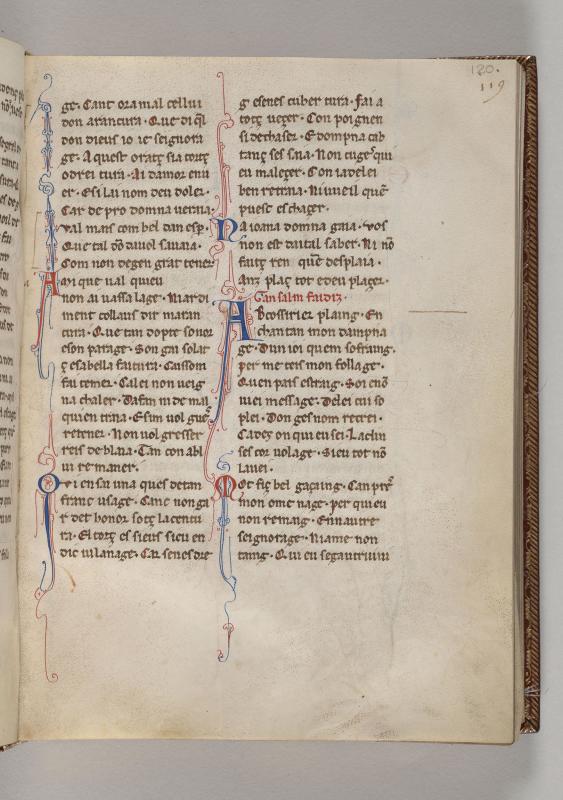 120.
119
ge. Canc ora mal cellui
don arancura. Que di ql
don dieus io ie seignora
ge. A quest oratç sia totç
odrei tura. Ai damor enu
er. E si lai nom deu doler.
Car de pro domna uerna.
val mais com bel dun esp.
Que tal dō dauol sauaia.
Com non degen grat tener.
Ami que ual quieu
non ai uassalage. Ni ardi
ment collaus dir maran
cura. Que tan dopre sonor
e son parage. Son gai solar
ç esabella faitura. Caissom
fai temer. Ca lei non ueig
na chaler. Dafin in de mal
qui en traia. E sim uol gueʳ
retener. Non uol gresser
reis de blaia. Can con abl
ui re maner.
Or i en sai una ques detan
franc usage. Canc non ga
r det honor sotç la centu
ra. El tortç es sieus sieu en
dic uilanage. Car senes die
g esenes cuber tura. Fai a
totç ueçer. Con poignen
si dechaser. E domna cab
tanç ses saia. Non cugeˢ qui
eu maleçer. Con ia delei
ben retraia. Ni uueil quē
puesc eschager.
Na ioana domna gaia. vos
non est daital saber. Ni nō
faitç ren quē desplaia.
Anz plaç tot e deu plaçer.
Gansalm faidiz.
Ab cossirier plaing. En
chantan mon dampna
ge. Dun ioi quem sofraing.
per me teis mon follage.
Quen pais estraig. Soi enō
uei message. De lei cui so
plei. Don ges nom recrei.
Cadeç on qui eu sei. La clin
ses cor uolage. Si eu tot nō
lauei.
Mot fiç bel gaçaing. Can preˢ
mon omenage. per qui eu
non remaig. En nautre
seignorage. Ni ame non
taing. Qui eu segautruiu